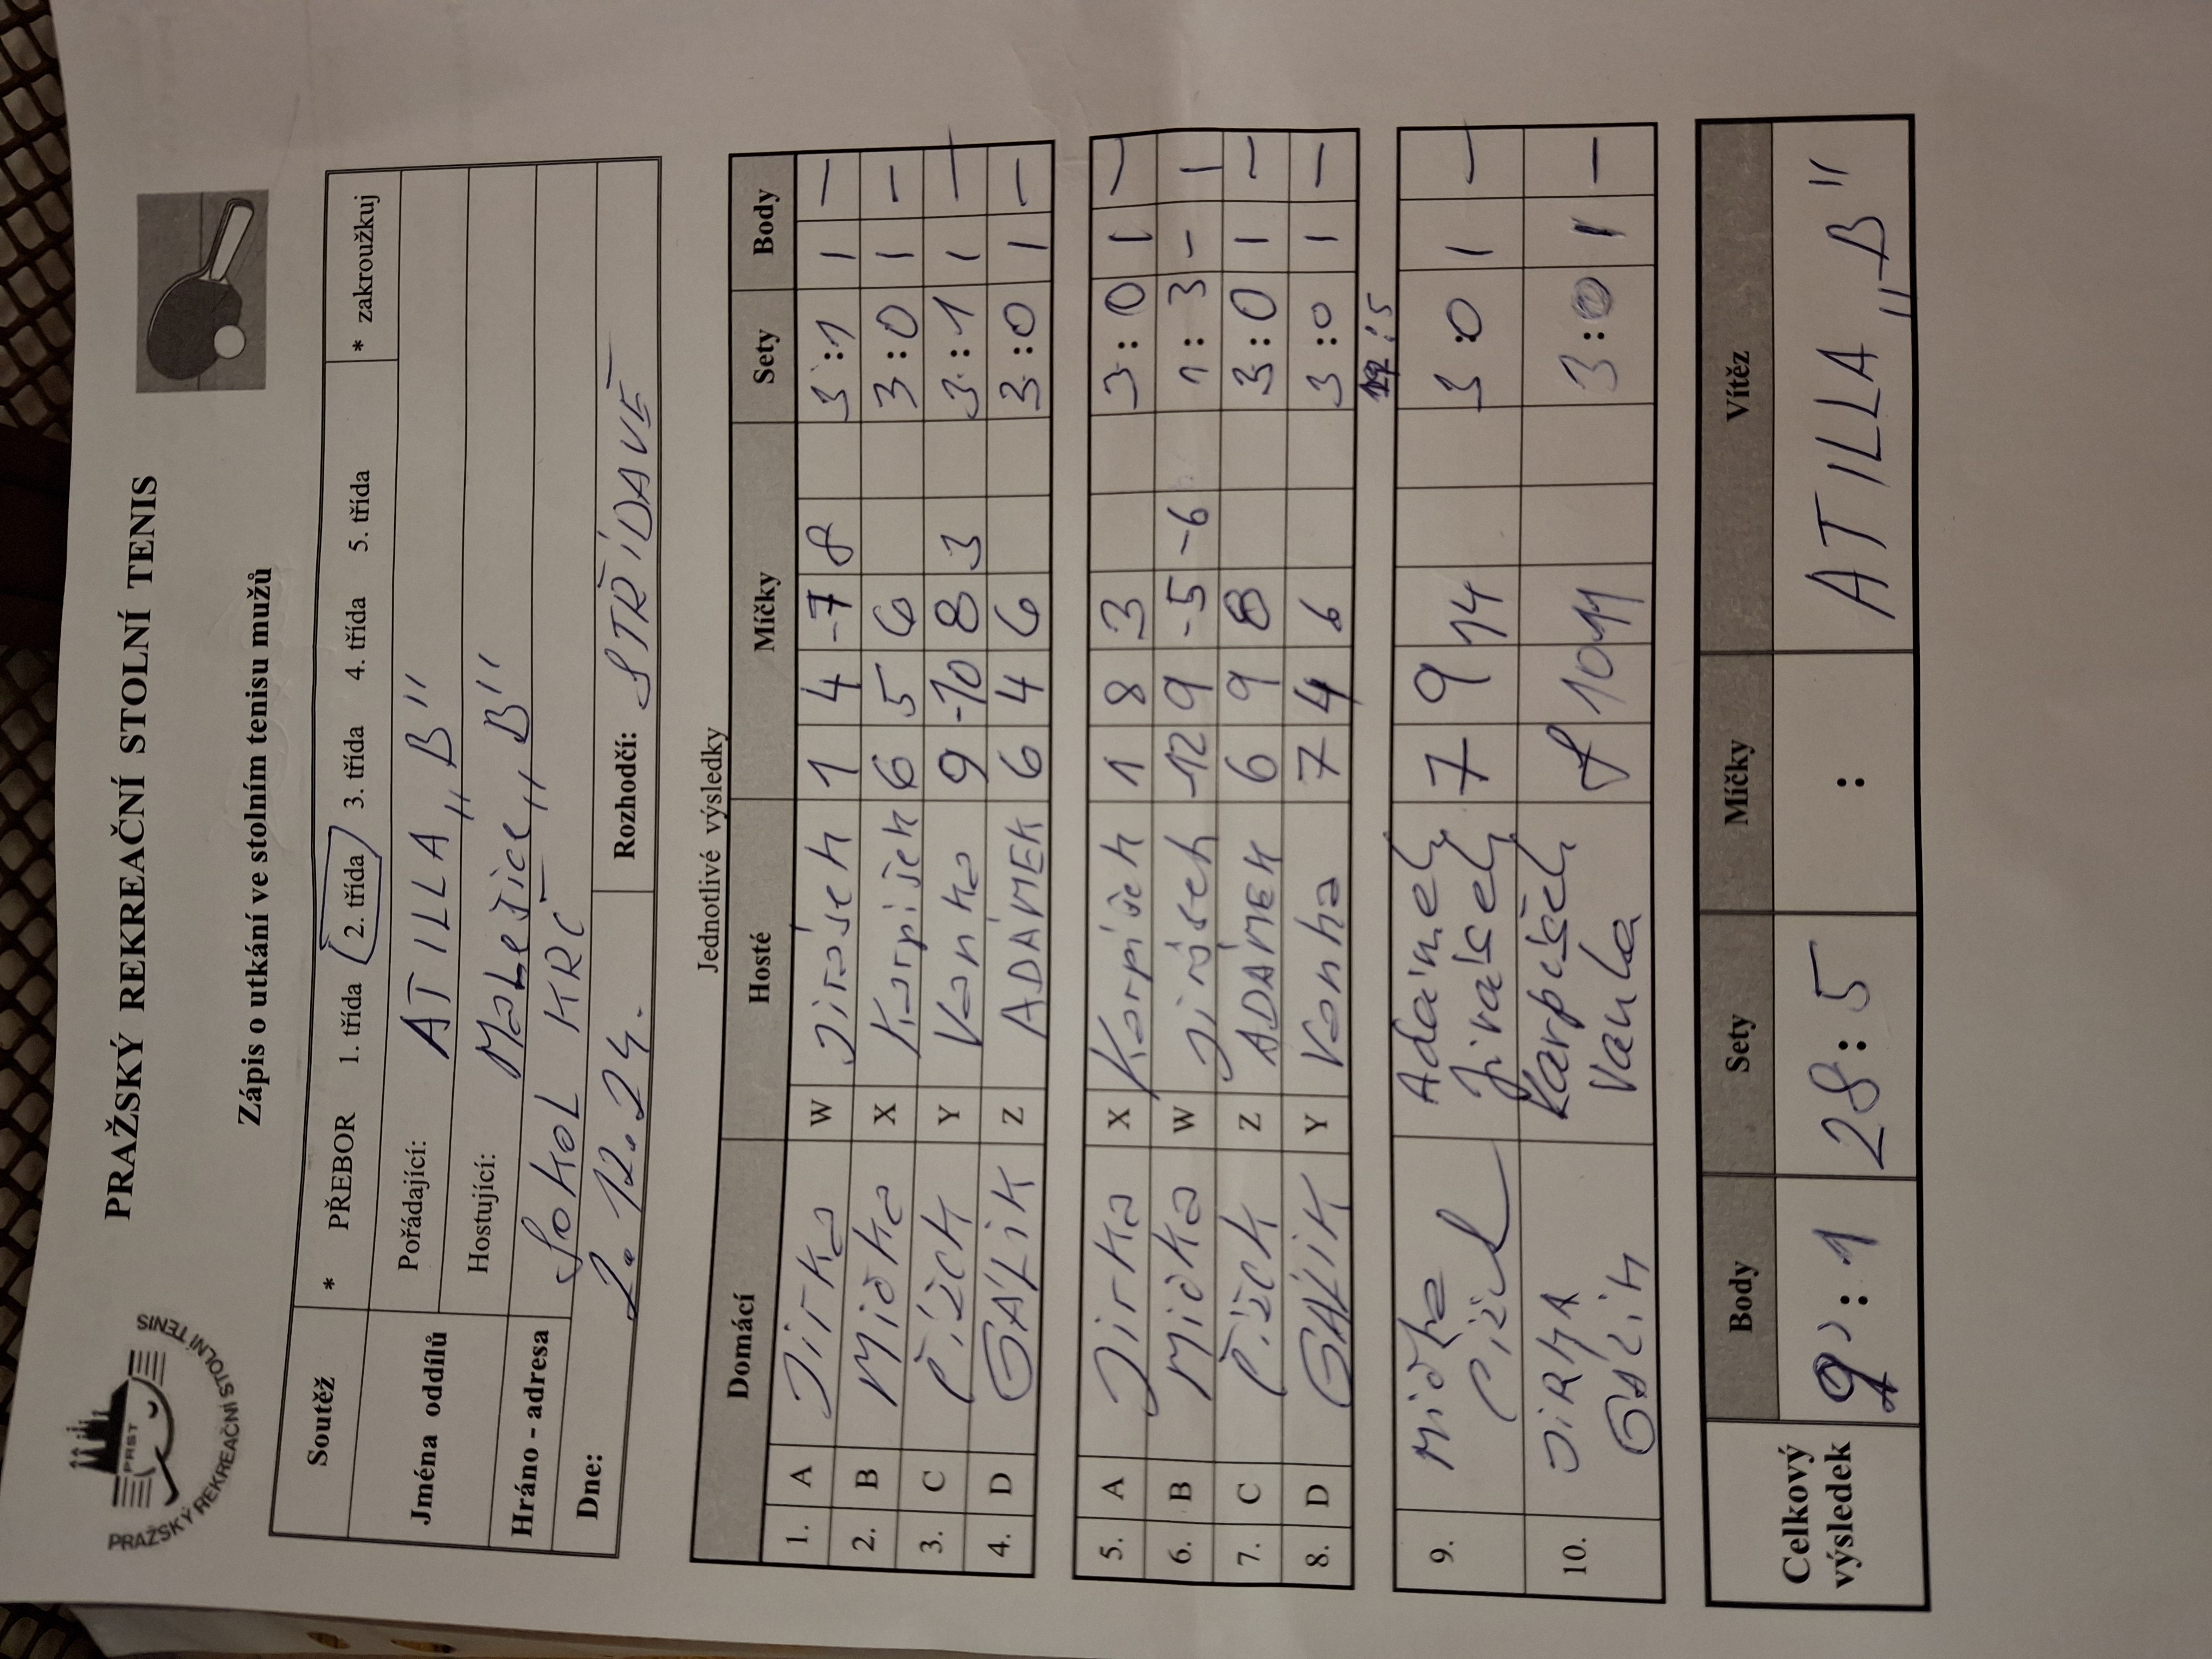 PRAŽSKÝ REKREAČNÍ STOLNÍ TENIS
PRST
PRAŽSKÝ REKREAČNÍ STOLNÍ TENIS
Zápis o utkání ve stolním tenisu mužů
Soutěž * PŘEBOR 1. třída 2. třída 3. třída 4. třída 5. třída * zakroužkuj
Jména oddílů Pořádající: ATILLA „B"
Hostující: Malešice „B"
Hráno - adresa SOKOL KRČ
Dne: 2. 12. 24. Rozhodčí: STŘÍDAVĚ
Jednotlivé výsledky
Domácí Hosté Míčky Sety Body
1. A Jirka W Jirásek 1 4 -7 8 3:1 1 –
2. B Mička X Karpišek 6 5 6 3:0 1 –
3. C Čížek Y Vaňka 9 -10 8 3 3:1 1 –
4. D GÁLIK Z ADÁMEK 6 4 6 3:0 1 –
5. A Jirka X Karpišek 1 8 3 3:0 1 –
6. B Mička W Jirásek -12 9 -5 -6 1:3 – 1
7. C Čížek Z ADÁMEK 6 9 8 3:0 1 –
8. D GÁLIK Y Vaňka 7 4 6 3:0 1 –
:5
9. Mička Adámek 7 9 14 3:0 1 –
Čížek Jirásek
10. JIRKA Karpíšek 8 10 11 3:0 1 –
Gálik Vaňka
Celkový výsledek Body Sety Míčky Vítěz
9:1 28:5 : ATILLA „B"